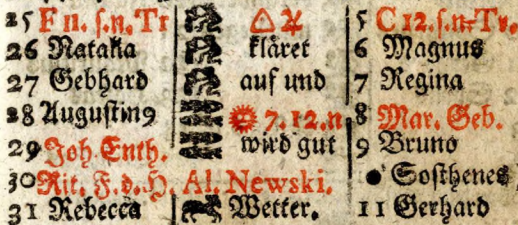 25 F 11. ſ.n. Tr △ ♃ 5 C 12. ſ.n. Tr.
26 Natalia kläret 6 Magnus
27 Gebhard auf und 7 Regina
28 Auguſtin9 7.12.n 8 Mar. Geb.
29 Joh. Enth. wird gut 9 Bruno
30 Rit. F. d. H. Al. Newski. Soſthenes
31 Rebecca Wetter. 11 Gerhard